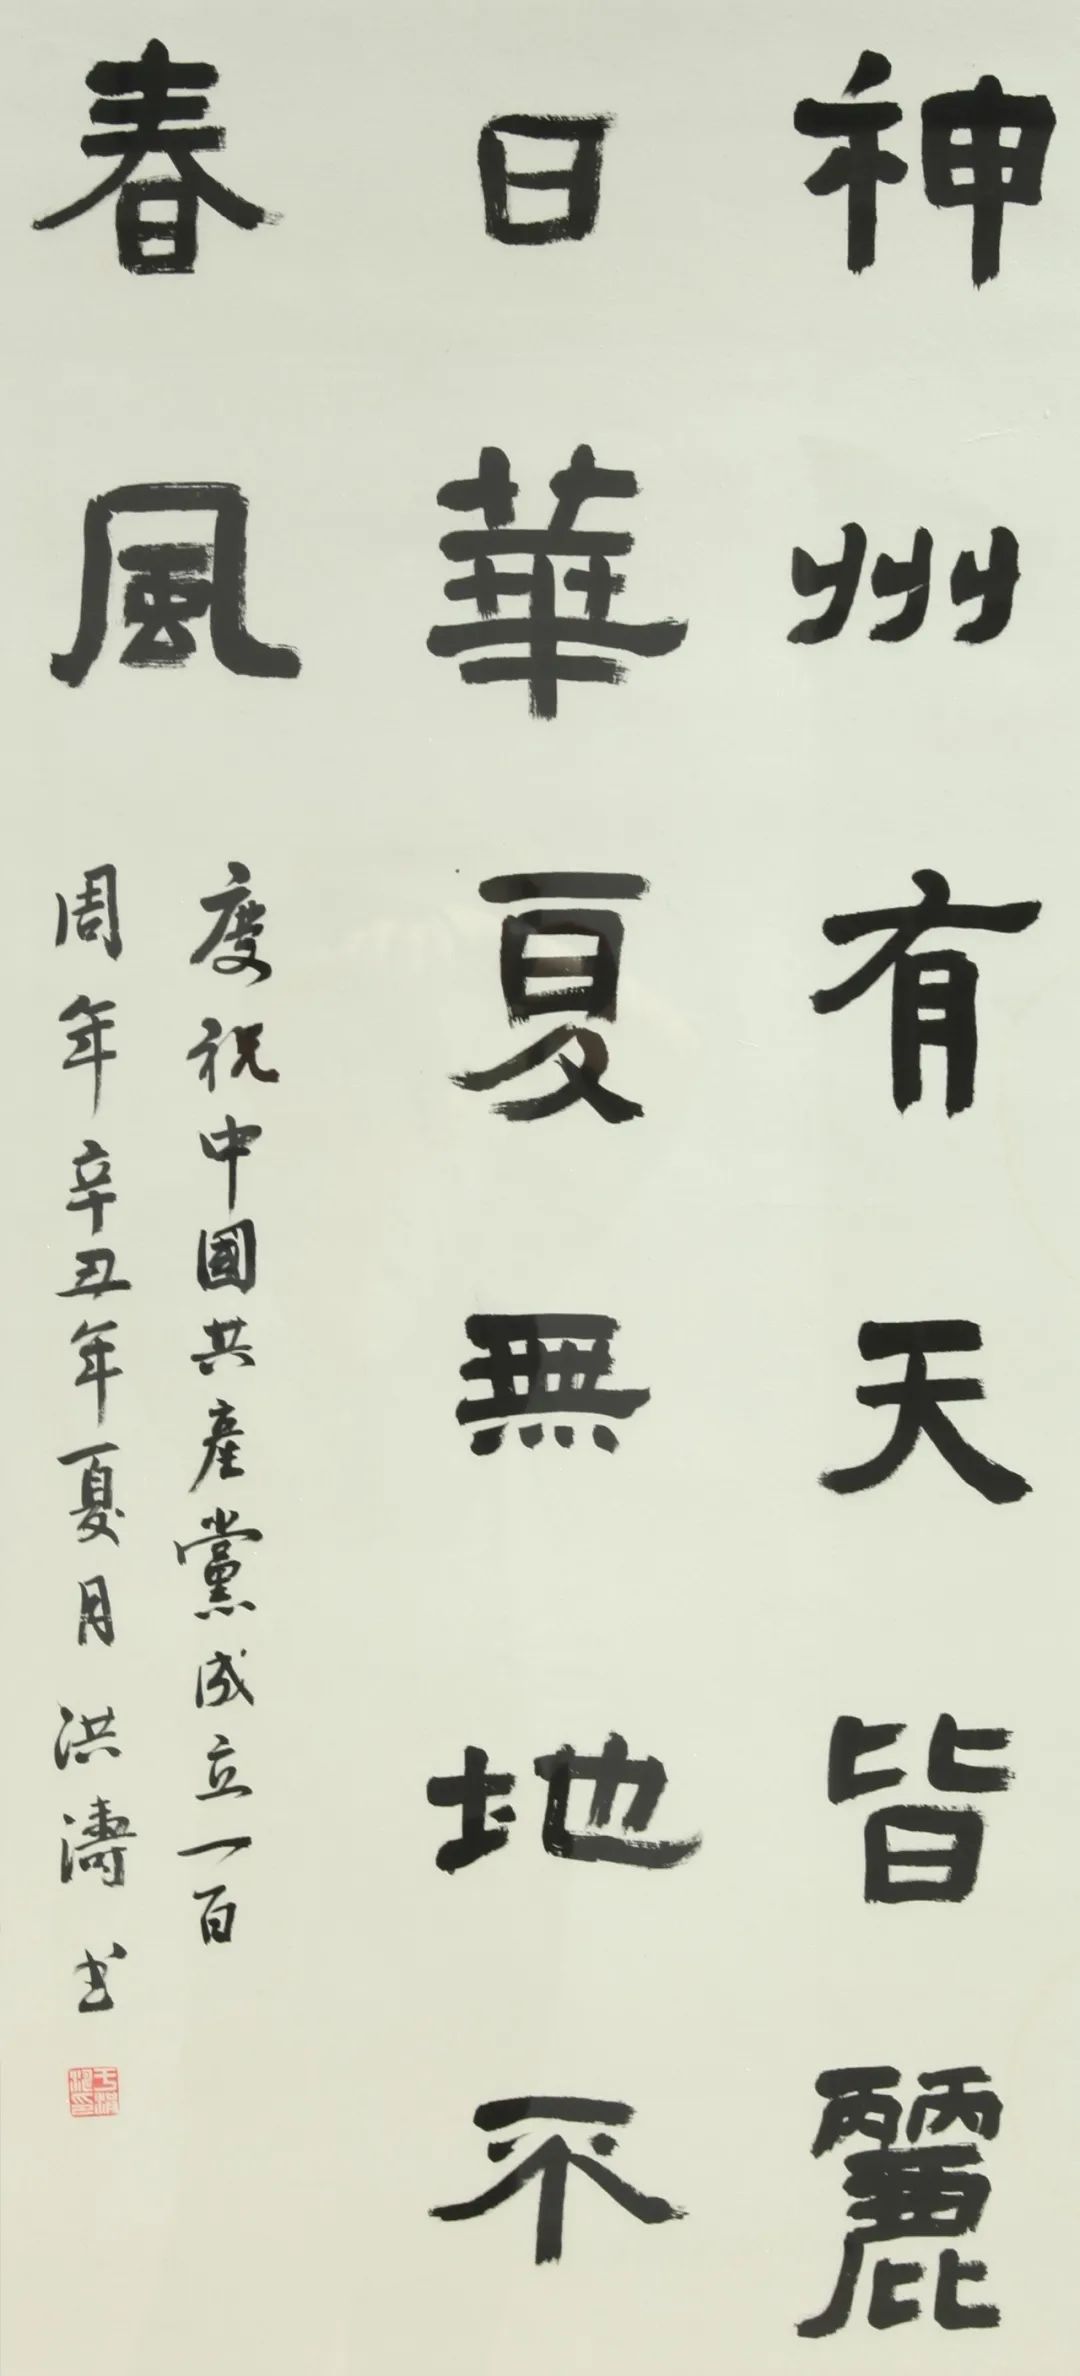 神州有天皆麗
日華夏無地不
春風
慶祝中國共產黨成立一百
周年辛丑年夏月洪濤书